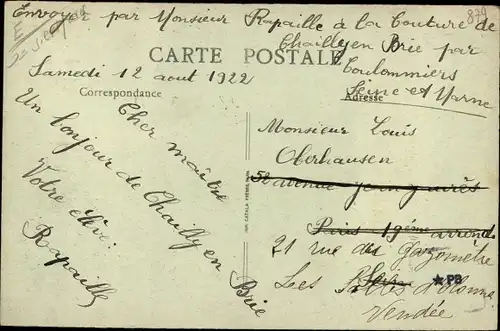 Envoyer par Monsieur Rapaille à la Couture de
Chailly en Brie par
Coulommiers
Seine et Marne
CARTE POSTALE
Samedi 12 aout 1922
Correspondance
Adresse
Cher maître
Un bonjour de Chailly en
Brie
Votre élève:
Rapaille
IMP. CATALA FRÈRES, PARIS
Monsieur Louis
Oberhausen
52 avenue Jean Jaurès
Paris 19ème arrond.
21 rue du Gazomètre
Les Sables d'Olonne
Vendée
★PB